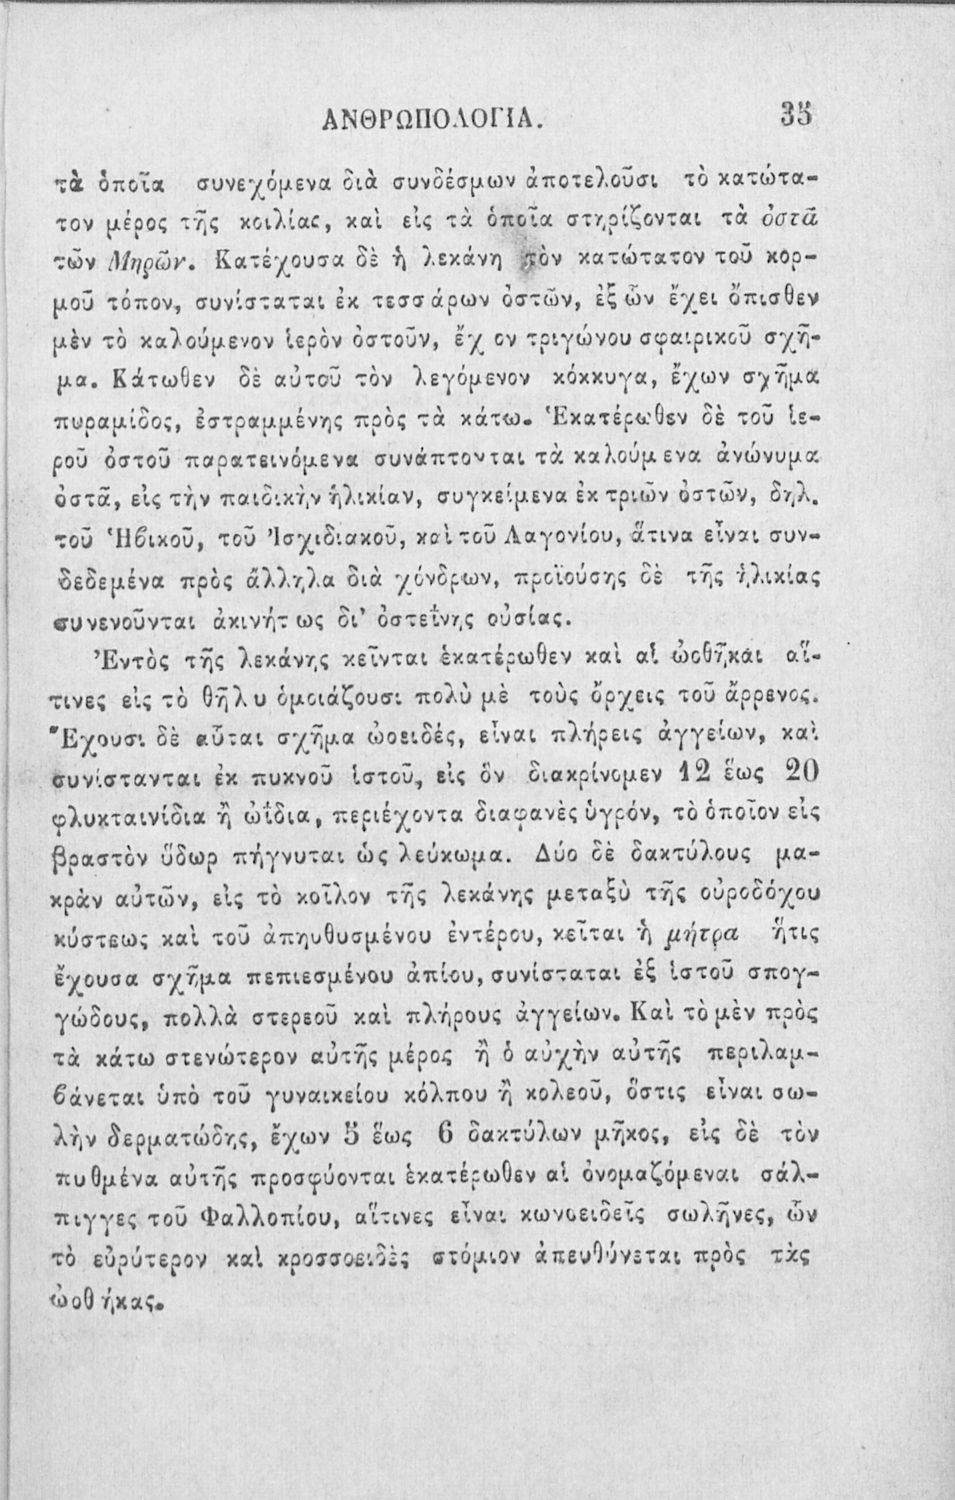 ΑΝΘΡΩΠΟΛΟΓΙΑ. 35
τὰ ὁποῖα συνεχόμενα διὰ συνδέσμων ἀποτελοῦσι τὸ κατώτα-
τον μέρος τῆς κοιλίας, καὶ εἰς τὰ ὁποῖα στηρίζονται τὰ ὀστᾶ
τῶν Μηρῶν. Κατέχουσα δὲ ἡ λεκάνη τὸν κατώτατον τοῦ κορ-
μοῦ τόπον, συνίσταται ἐκ τεσσάρων ὀστῶν, ἐξ ὧν ἔχει ὄπισθεν
μὲν τὸ καλούμενον ἱερὸν ὀστοῦν, ἔχον τριγώνου σφαιρικοῦ σχῆ-
μα. Κάτωθεν δὲ αὐτοῦ τὸν λεγόμενον κόκκυγα, ἔχων σχῆμα
πυραμίδος, ἐστραμμένης πρὸς τὰ κάτω. Ἑκατέρωθεν δὲ τοῦ ἱε-
ροῦ ὀστοῦ παρατεινόμενα συνάπτονται τὰ καλούμενα ἀνώνυμα
ὀστᾶ, εἰς τὴν παιδικὴν ἡλικίαν, συγκείμενα ἐκ τριῶν ὀστῶν, δηλ.
τοῦ Ἡβικοῦ, τοῦ Ἰσχιδιακοῦ, καὶ τοῦ Λαγονίου, ἅτινα εἶναι συν-
δεδεμένα πρὸς ἄλληλα διὰ χόνδρων, προϊούσης δὲ τῆς ἡλικίας
συνενοῦνται ἀκινήτως δι' ὀστεΐνης οὐσίας.
Ἐντὸς τῆς λεκάνης κεῖνται ἑκατέρωθεν καὶ αἱ ὠοθῆκαι αἵ-
τινες εἰς τὸ θῆλυ ὁμοιάζουσι πολὺ μὲ τοὺς ὄρχεις τοῦ ἄρρενος.
Ἔχουσι δὲ αὗται σχῆμα ὠοειδές, εἶναι πλήρεις ἀγγείων, καὶ
συνίστανται ἐκ πυκνοῦ ἱστοῦ, εἰς ὃν διακρίνομεν 12 ἕως 20
φλυκταινίδια ἢ ὠΐδια, περιέχοντα διαφανὲς ὑγρόν, τὸ ὁποῖον εἰς
βραστὸν ὕδωρ πήγνυται ὡς λεύκωμα. Δύο δὲ δακτύλους μα-
κρὰν αὐτῶν, εἰς τὸ κοῖλον τῆς λεκάνης μεταξὺ τῆς οὐροδόχου
κύστεως καὶ τοῦ ἀπηυθυσμένου ἐντέρου, κεῖται ἡ μήτρα ἥτις
ἔχουσα σχῆμα πεπιεσμένου ἀπίου, συνίσταται ἐξ ἱστοῦ σπογ-
γώδους, πολλὰ στερεοῦ καὶ πλήρους ἀγγείων. Καὶ τὸ μὲν πρὸς
τὰ κάτω στενώτερον αὐτῆς μέρος ἢ ὁ αὐχὴν αὐτῆς περιλαμ-
βάνεται ὑπὸ τοῦ γυναικείου κόλπου ἢ κολεοῦ, ὅστις εἶναι σω-
λὴν δερματώδης, ἔχων 5 ἕως 6 δακτύλων μῆκος, εἰς δὲ τὸν
πυθμένα αὐτῆς προσφύονται ἑκατέρωθεν αἱ ὀνομαζόμεναι σάλ-
πιγγες τοῦ Φαλλοπίου, αἵτινες εἶναι κωνοειδεῖς σωλῆνες, ὧν
τὸ εὐρύτερον καὶ κροσσοειδὲς στόμιον ἀπευθύνεται πρὸς τὰς
ὠοθήκας.